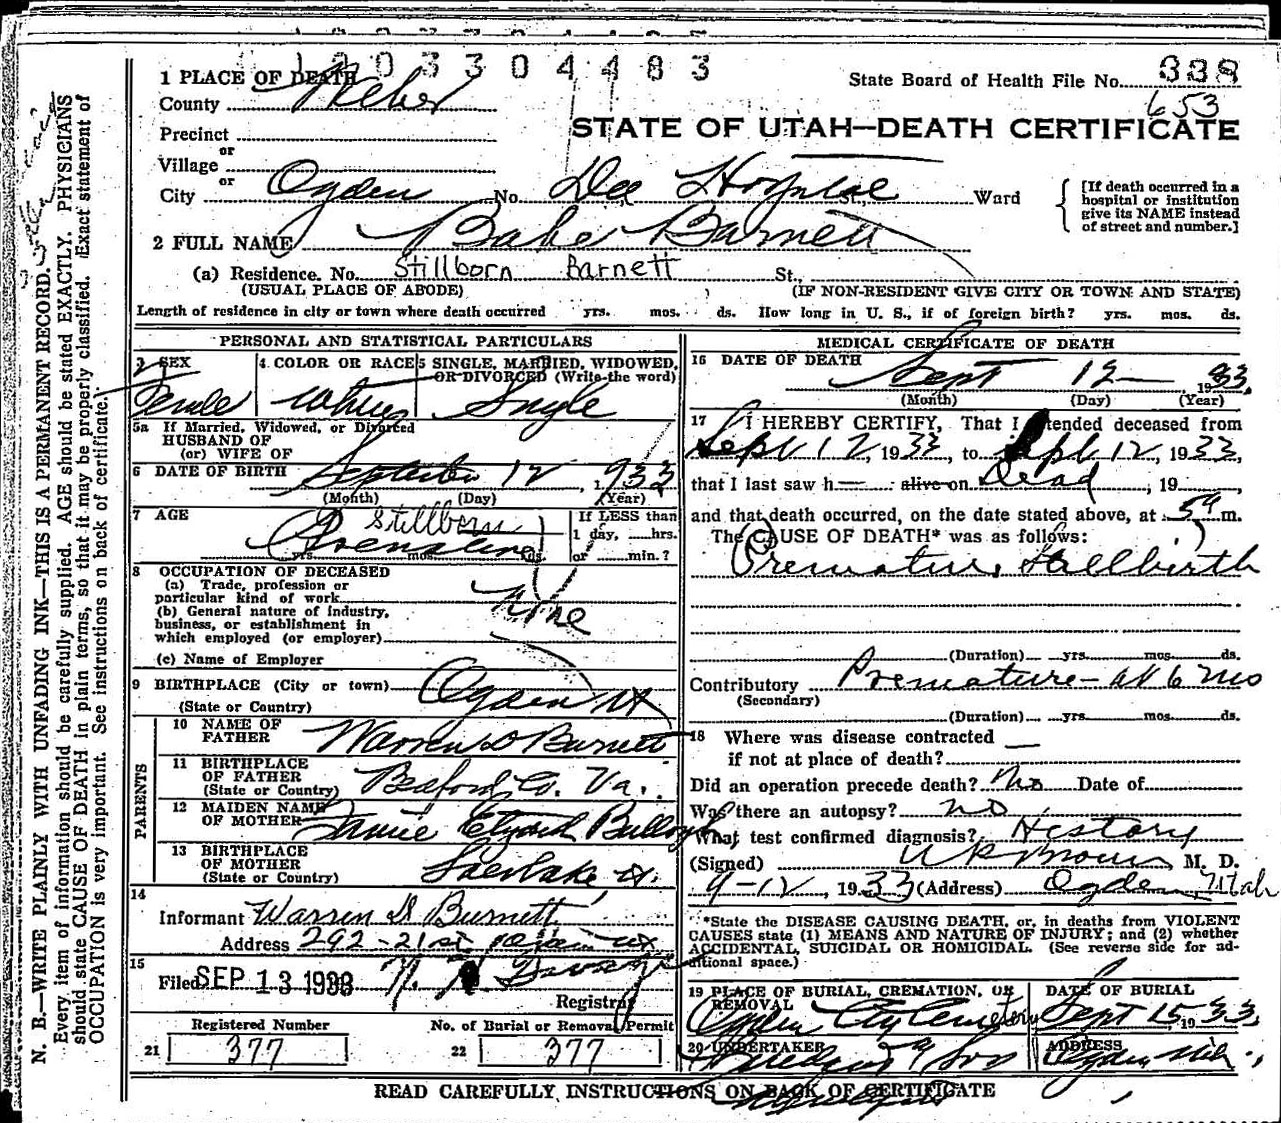 1 2 0 3 3 0 4 4 8 3
1 PLACE OF DEATH
County Weber
State Board of Health File No. 338
653
Precinct
or
Village
or
STATE OF UTAH—DEATH CERTIFICATE
City Ogden No. Dee Hospital St., Ward
[If death occurred in a
hospital or institution
give its NAME instead
of street and number.]
2 FULL NAME Babe Barnett
(a) Residence. No. Stillborn Barnett St.,
(USUAL PLACE OF ABODE) (IF NON-RESIDENT GIVE CITY OR TOWN AND STATE)
Length of residence in city or town where death occurred yrs. mos. ds. How long in U. S., if of foreign birth? yrs. mos. ds.
PERSONAL AND STATISTICAL PARTICULARS
3 SEX 4 COLOR OR RACE 5 SINGLE, MARRIED, WIDOWED,
OR DIVORCED (Write the word)
Female White Single
5a If Married, Widowed, or Divorced
HUSBAND OF
(or) WIFE OF
6 DATE OF BIRTH September 12, 1933
(Month) (Day) (Year)
7 AGE Stillborn If LESS than
1 day, hrs.
Premature yrs. mos. ds. or min.?
8 OCCUPATION OF DECEASED
(a) Trade, profession or
particular kind of work None
(b) General nature of industry,
business, or establishment in
which employed (or employer)
(c) Name of Employer
9 BIRTHPLACE (City or town) Ogden Ut
(State or Country)
PARENTS
10 NAME OF
FATHER Warren D Burnett
11 BIRTHPLACE
OF FATHER Bedford Co. Va.
(State or Country)
12 MAIDEN NAME
OF MOTHER
13 BIRTHPLACE
OF MOTHER Salt Lake Ut.
(State or Country)
14
Informant Warren D Burnett
Address 292 - 21st Ogden Ut
15
Filed SEP 13 1933
Registrar
Registered Number No. of Burial or Removal Permit
21 377 22 377
MEDICAL CERTIFICATE OF DEATH
16 DATE OF DEATH
Sept 12 1933
(Month) (Day) (Year)
17 I HEREBY CERTIFY, That I attended deceased from
Sept 12, 1933, to Sept 12, 1933,
that I last saw h— alive on Dead, 19
and that death occurred, on the date stated above, at 5 a m.
The CAUSE OF DEATH* was as follows:
Premature Stillbirth
(Duration) yrs. mos. ds.
Contributory Premature - at 6 mo
(Secondary)
(Duration) yrs. mos. ds.
18 Where was disease contracted
if not at place of death? —
Did an operation precede death? No Date of
Was there an autopsy? no
What test confirmed diagnosis? History
(Signed) W R Brown M. D.
9-12, 1933 (Address) Ogden, Utah
*State the DISEASE CAUSING DEATH, or, in deaths from VIOLENT
CAUSES state (1) MEANS AND NATURE OF INJURY; and (2) whether
ACCIDENTAL, SUICIDAL OR HOMICIDAL. (See reverse side for ad-
ditional space.)
19 PLACE OF BURIAL, CREMATION, OR
REMOVAL DATE OF BURIAL
Ogden City Cemetery Sept 15, 1933
20 UNDERTAKER ADDRESS
& Son Ogden Utah
READ CAREFULLY INSTRUCTIONS ON BACK OF CERTIFICATE
N. B.—WRITE PLAINLY WITH UNFADING INK—THIS IS A PERMANENT RECORD.
Every item of information should be carefully supplied. AGE should be stated EXACTLY. PHYSICIANS
should state CAUSE OF DEATH in plain terms, so that it may be properly classified. Exact statement of
OCCUPATION is very important. See instructions on back of certificate.